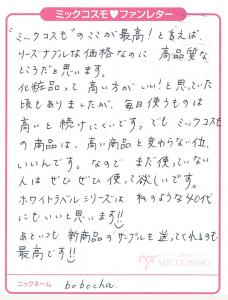 ミックコスモ♥ファンレター
"ミックコスモ"のここが最高!と言えば、
リーズナブルな価格なのに高品質な
ところだと思います。
化粧品って高い方がいい!と思っていた
頃もありましたが、毎日使うものは
高いと続けにくいです。でもミックコスモ
の商品は、高い商品と変わらない位、
いいんです。なのでまだ使っていない
人はぜひぜひ使って欲しいです。
ホワイトラベルシリーズは私のような40代
にもいいと思います!!
あといつも新商品のサンプルを送ってくれるのも
最高です!!
MICCOSMO
ニックネーム
bobocha.